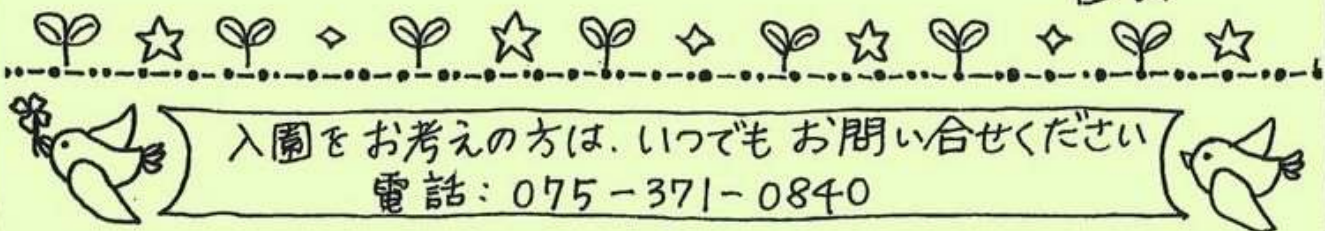 入園をお考えの方は、いつでも お問い合せください
電話：075-371-0840